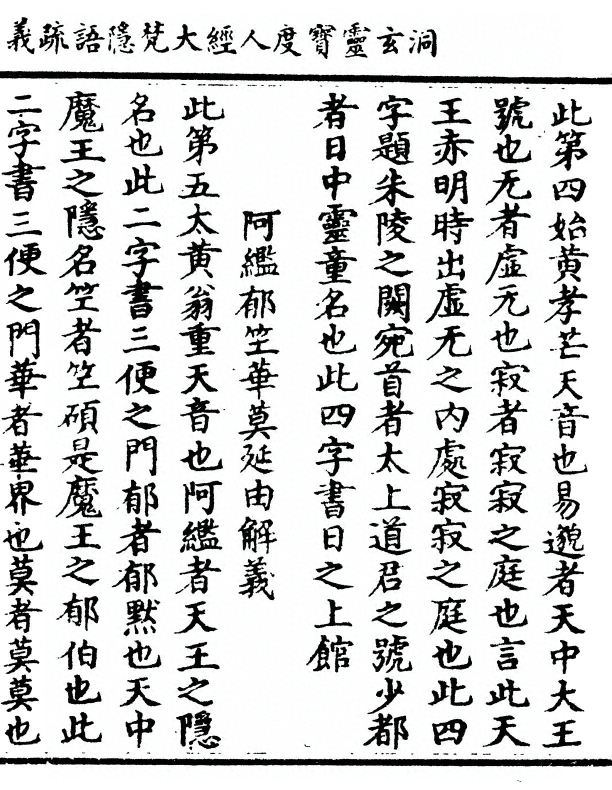 洞玄靈寶度人經大梵隱語疏義
此第四始黄孝芒天音也易邈者天中大王
號也无者虛无也寂者寂寂之庭也言此天
王赤明時出虛无之内處寂寂之庭也此四
字題朱陵之闕宛首者太上道君之號少都
者日中靈童名也此四字書日之上館
阿繿郁竺華莫延由解義
此第五太黄翁重天音也阿繿者天王之隱
名也此二字書三便之門郁者郁黙也天中
魔王之隱名竺者竺碩是魔王之郁伯也此
二字書三便之門華者華界也莫者莫莫也